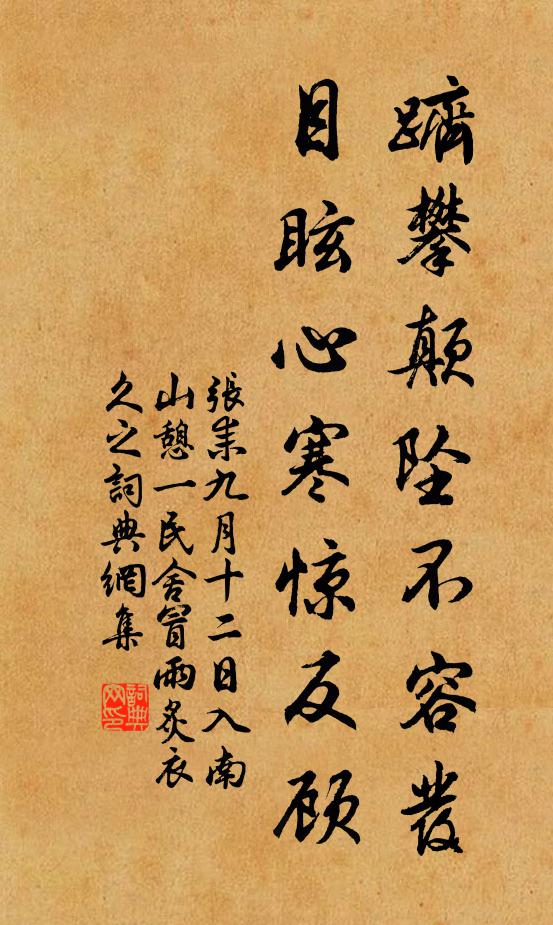 躋攀顛坠不容發
目眩心寒惊反顾
張耒九月十二日入南
山憩一民舍冒雨炙衣
久之詞典網集
詞典网印